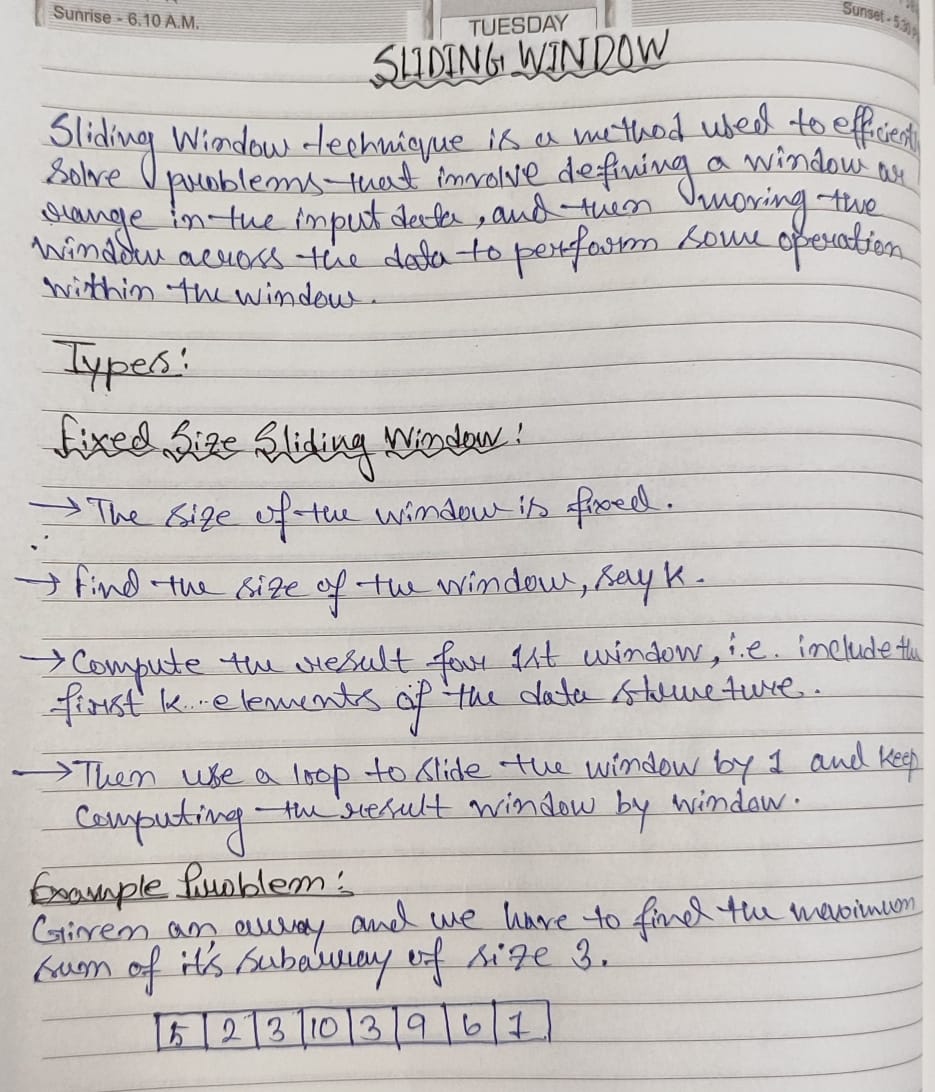 Sunrise - 6.10 A.M.
TUESDAY
Sunset - 5.30 P
SLIDING WINDOW
Sliding Window technique is a method used to efficiently
Solve problems that involve defining a window or
range in the input data, and then moving the
window across the data to perform some operation
within the window.
Types:
Fixed Size Sliding Window:
→ The size of the window is fixed.
→ Find the size of the window, say k.
→ Compute the result for 1st window, i.e. include the
first k elements of the data structure.
→ Then use a loop to slide the window by 1 and keep
computing the result window by window.
Example Problem:
Given an array and we have to find the maximum
sum of it's subarray of size 3.
5 2 3 10 3 9 6 1